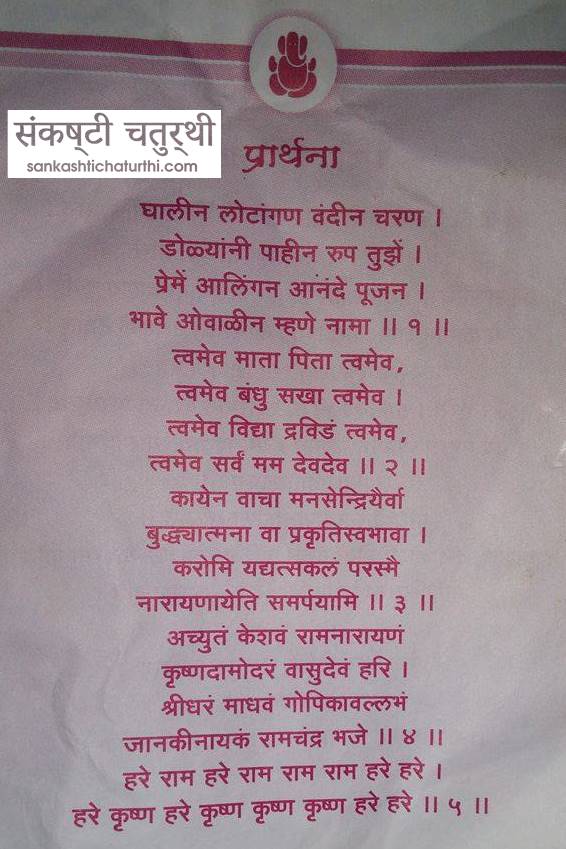 संकष्टी चतुर्थी
sankashtichaturthi.com
प्रार्थना
घालीन लोटांगण वंदीन चरण ।
डोळ्यांनी पाहीन रुप तुझें ।
प्रेमें आलिंगन आनंदे पूजन ।
भावे ओवाळीन म्हणे नामा ।। १ ।।
त्वमेव माता पिता त्वमेव,
त्वमेव बंधु सखा त्वमेव ।
त्वमेव विद्या द्रविडं त्वमेव,
त्वमेव सर्वं मम देवदेव ।। २ ।।
कायेन वाचा मनसेन्द्रिथैर्वा
बुद्ध्यात्मना वा प्रकृतिस्वभावा ।
करोमि यद्यत्सकलं परस्मै
नारायणायेति समर्पयामि ।। ३ ।।
अच्युतं केशवं रामनारायणं
कृष्णदामोदरं वासुदेवं हरि ।
श्रीधरं माधवं गोपिकावल्लभं
जानकीनायकं रामचंद्र भजे ।। ४ ।।
हरे राम हरे राम राम राम हरे हरे ।
हरे कृष्ण हरे कृष्ण कृष्ण कृष्ण हरे हरे ।। ५ ।।